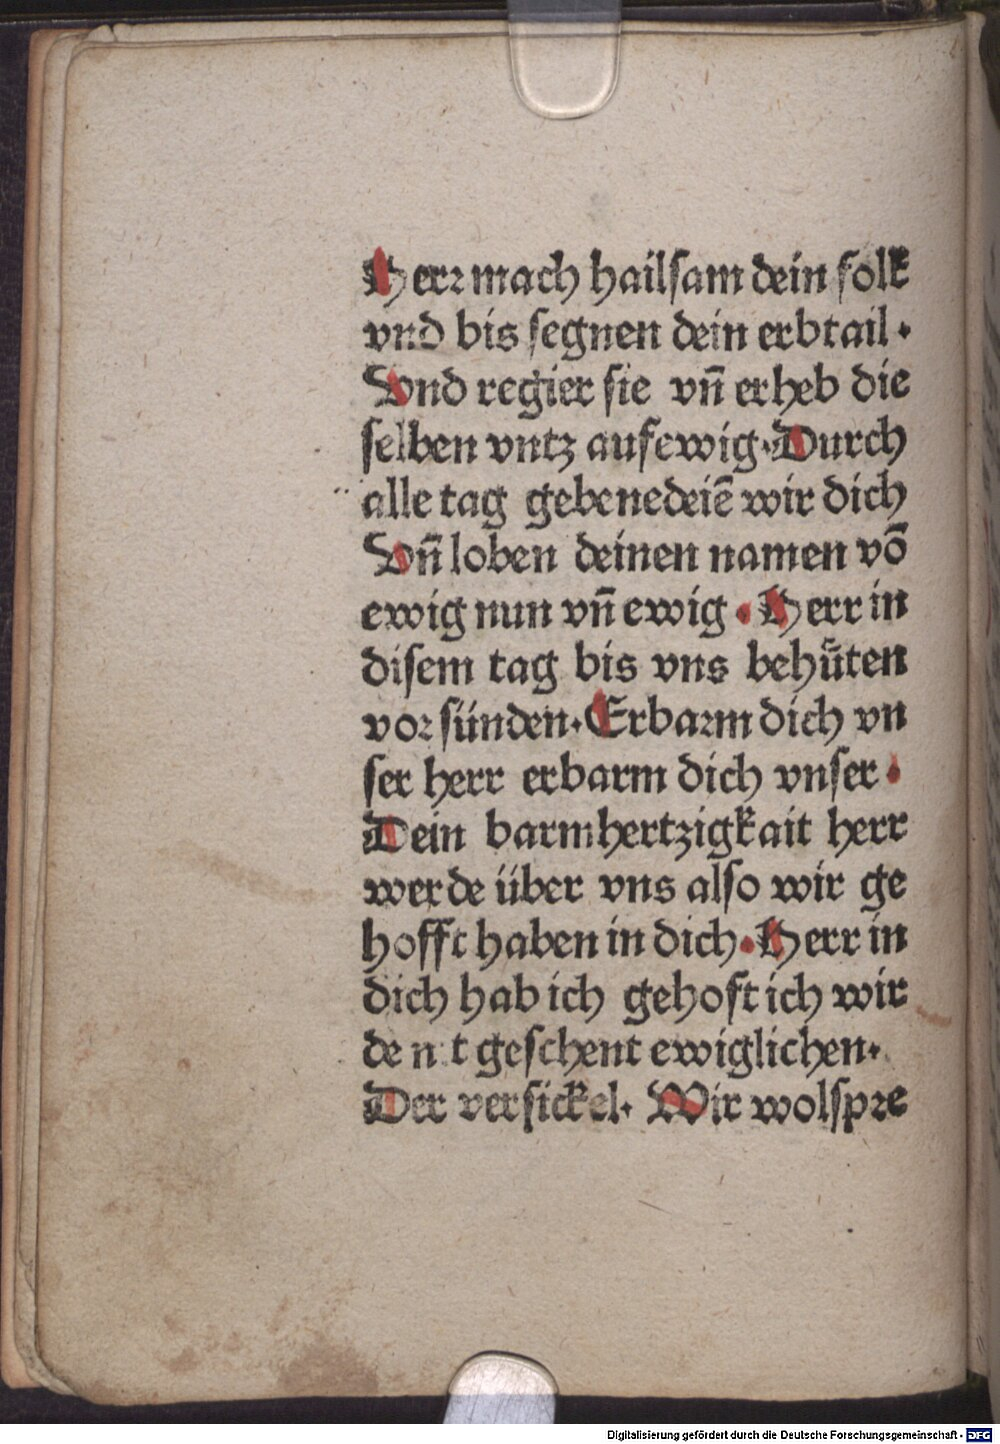 Herr mach hailsam dein folk
vnd bis segnen dein erbtail ·
Vnd regier sie vn̄ erheb die
selben vntz auf ewig · Durch
alle tag gebenedeiē wir dich
Vn̄ loben deinen namen vō
ewig nun vn̄ ewig · Herr in
disem tag bis vns behuͤten
vor sünden · Erbarm dich vn
ser herr erbarm dich vnser ·
Dein barmhertzigkait herr
werde über vns also wir ge
hofft haben in dich · Herr in
dich hab ich gehoft ich wir
de n t geschent ewiglichen ·
Der versickel · Wir wolspre
Digitalisierung gefördert durch die Deutsche Forschungsgemeinschaft - DFG